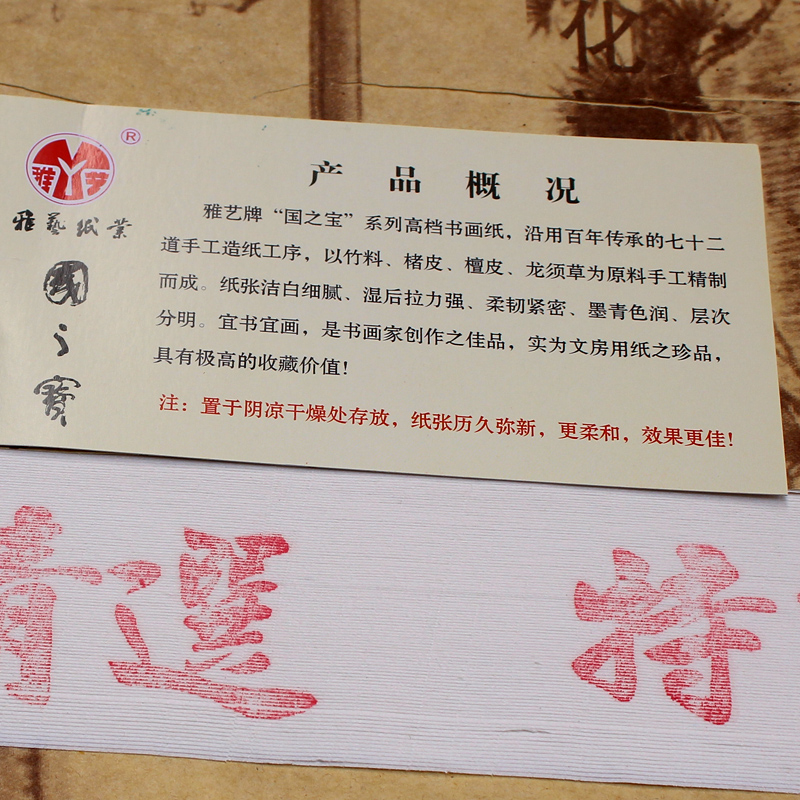 化
®
雅艺
雅藝纸业
國之寶
产品概况
雅艺牌“国之宝”系列高档书画纸，沿用百年传承的七十二
道手工造纸工序，以竹料、楮皮、檀皮、龙须草为原料手工精制
而成。纸张洁白细腻、湿后拉力强、柔韧紧密、墨青色润、层次
分明。宜书宜画，是书画家创作之佳品，实为文房用纸之珍品，
具有极高的收藏价值！
注：置于阴凉干燥处存放，纸张历久弥新，更柔和，效果更佳！
選 特